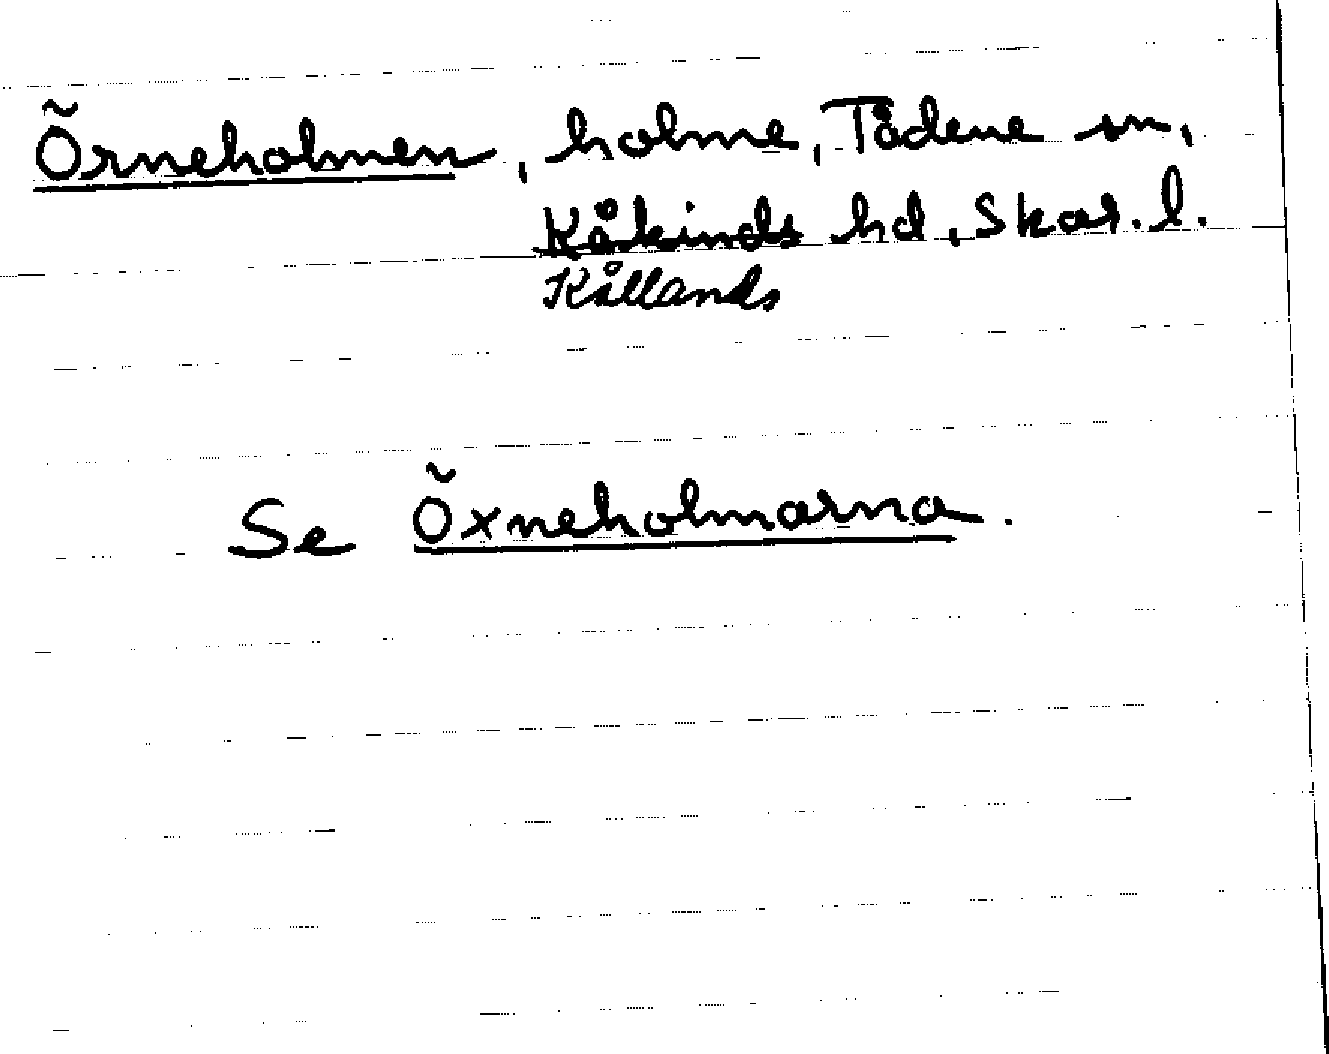 Örneholmen, holme, Tådene sn,
Kåkinds hd, Skar. l.
Kållands
Se Öxneholmarna.